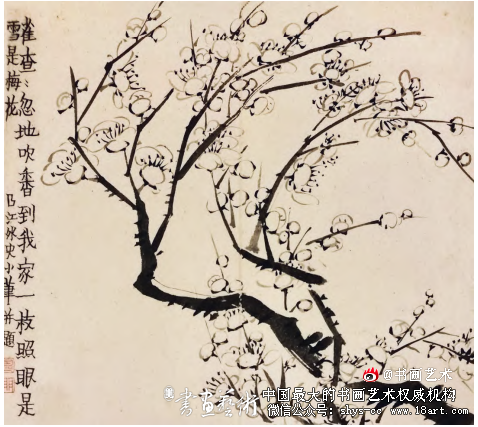 雀查〻忽地吹香到我家一枝照眼是
雪是梅花
曲江外史小筆并題
@书画艺术
書畫藝術
中国最大的书画艺术权威机构
微信公众号：shys-cc www.18art.com